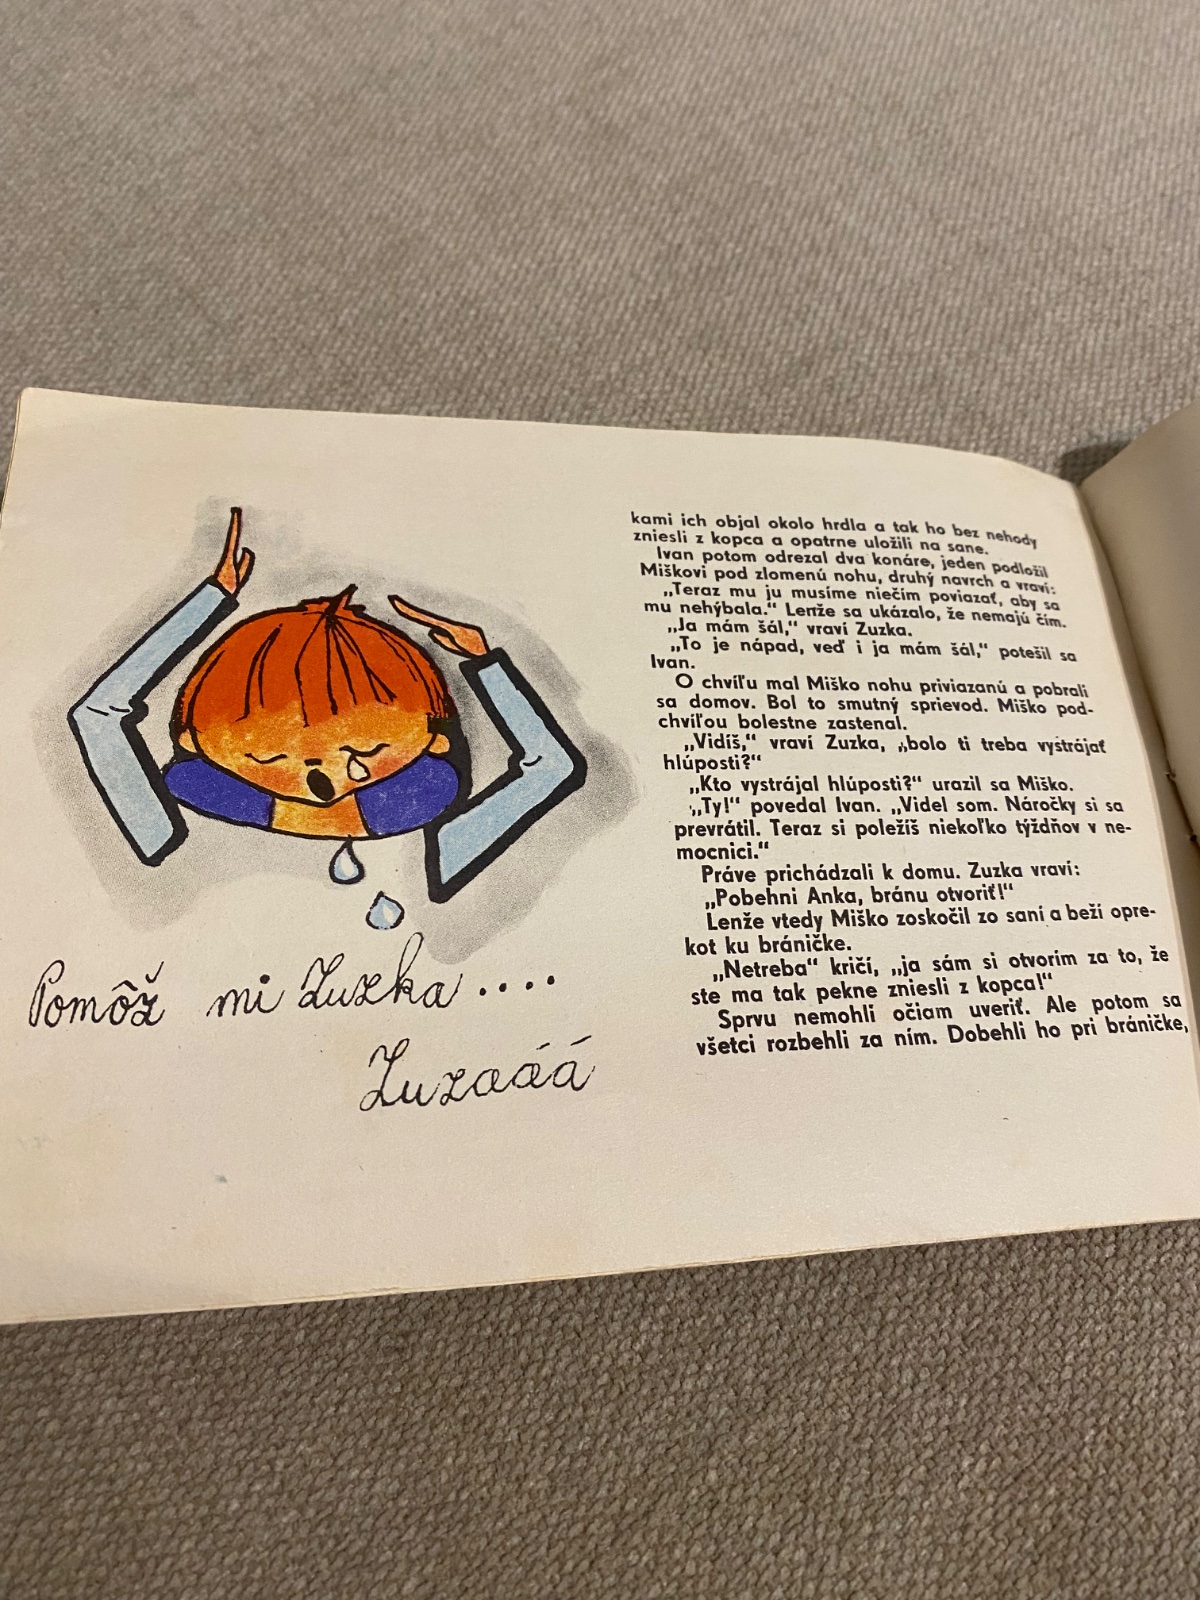 Pomôž mi Zuzka ....
Zuzááá
kami ich objal okolo hrdla a tak ho bez nehody
zniesli z kopca a opatrne uložili na sane.
Ivan potom odrezal dva konáre, jeden podložil
Miškovi pod zlomenú nohu, druhý navrch a vraví:
„Teraz mu ju musíme niečím poviazať, aby sa
mu nehýbala.“ Lenže sa ukázalo, že nemajú čím.
„Ja mám šál,“ vraví Zuzka.
„To je nápad, veď i ja mám šál,“ potešil sa
Ivan.
O chvíľu mal Miško nohu priviazanú a pobrali
sa domov. Bol to smutný sprievod. Miško pod-
chvíľou bolestne zastenal.
„Vidíš,“ vraví Zuzka, „bolo ti treba vystrájať
hlúposti?“
„Kto vystrájal hlúposti?“ urazil sa Miško.
„Ty!“ povedal Ivan. „Videl som. Náročky si sa
prevrátil. Teraz si poležíš niekoľko týždňov v ne-
mocnici.“
Práve prichádzali k domu. Zuzka vraví:
„Pobehni Anka, bránu otvoriť!“
Lenže vtedy Miško zoskočil zo saní a beží opre-
kot ku bráničke.
„Netreba“ kričí, „ja sám si otvorím za to, že
ste ma tak pekne zniesli z kopca!“
Sprvu nemohli očiam uveriť. Ale potom sa
všetci rozbehli za ním. Dobehli ho pri bráničke,